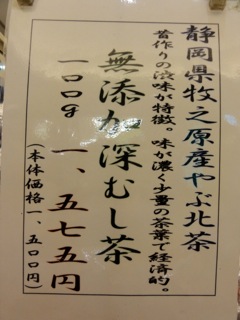 静岡県牧之原産やぶ北茶
昔作りの渋味が特徴。味が濃く少量の茶葉で経済的。
無添加深むし茶
一〇〇g 一、五七五円
(本体価格一、五〇〇円)